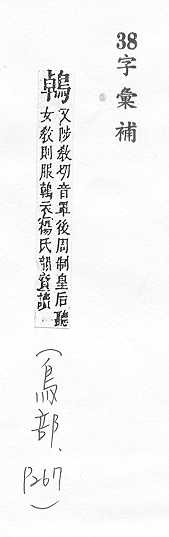 38字彙補
鵫 又陟教切音罩後周制皇后聽
女教則服鵫衣楊氏韻寶讀
(鳥部、P267)